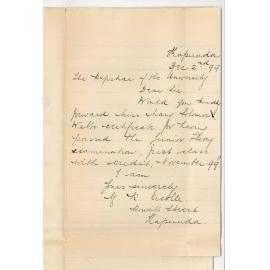 Kapunda
Dec 2nd 99
The Registrar of the University
Dear Sir
Would you kindly
forward Miss Mary Solomon
Watts certificate for having
passed the Junior Theory
examination, first class
with credit, November 99
I am
Yours sincerely
M. R.
Street
Kapunda.